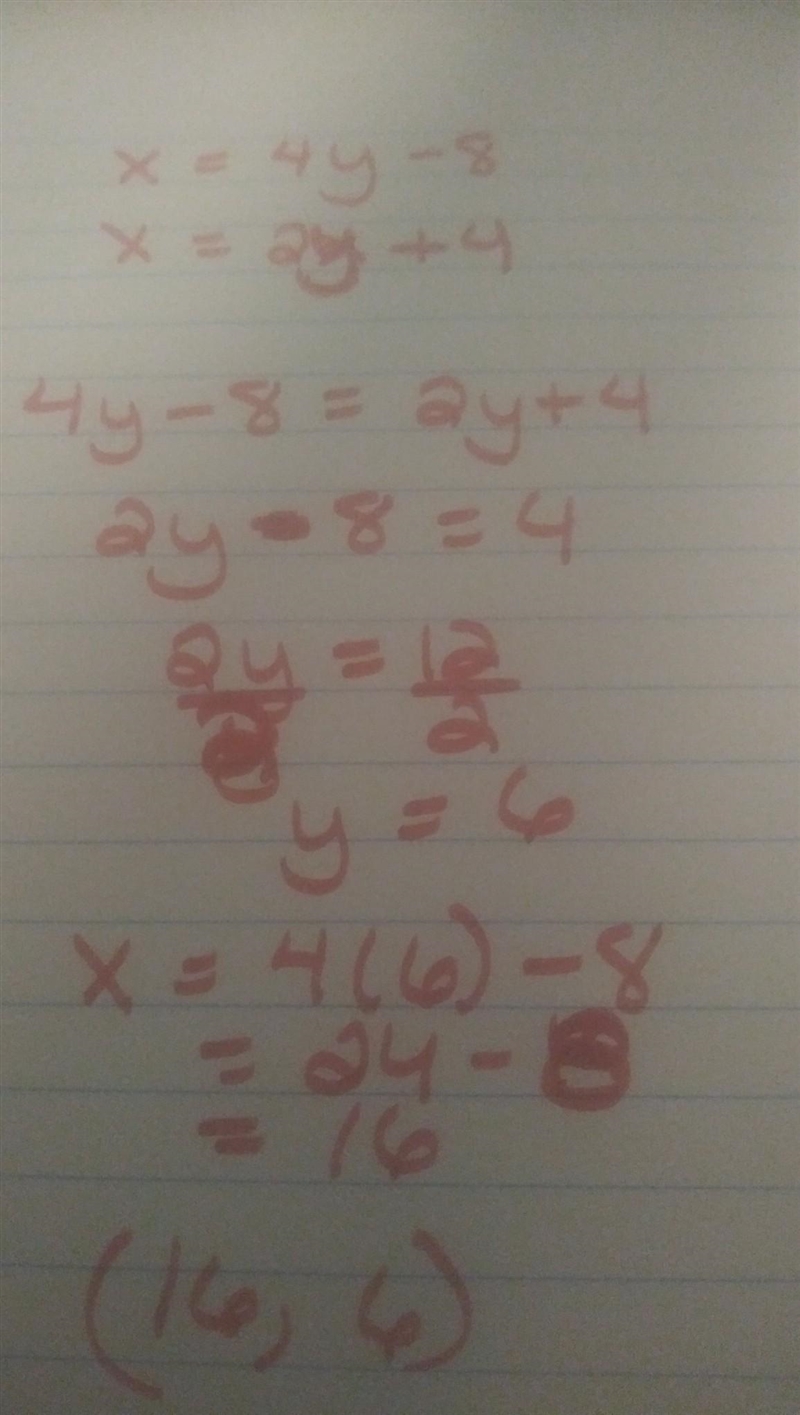 x = 4y - 8
x = 2y + 4
4y - 8 = 2y + 4
2y - 8 = 4
2y = 12
2 2
y = 6
x = 4(6) - 8
= 24 - 8
= 16
(16, 6)